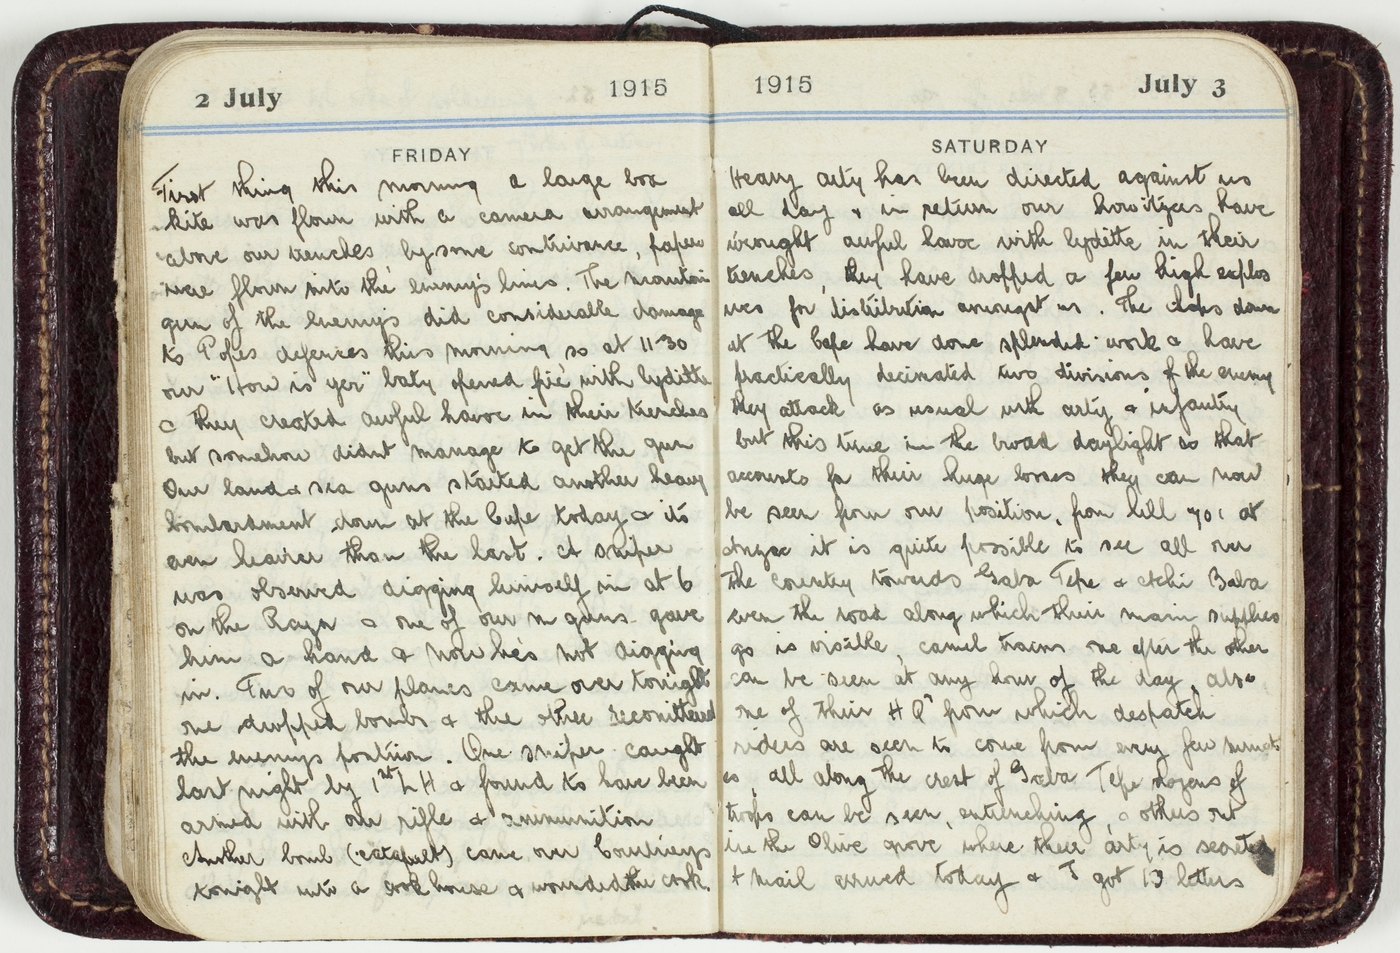 2 July 1915
FRIDAY
First thing this morning a large box
kite was flown with a camera arrangement
above our trenches by some contrivance, papers
were flown into the enemy's lines. The mountain
gun of the enemys did considerable damage
to Popes defences this morning so at 11-30
our "How is yer" baty opened fire with lyditte
& they created awful havoc in their trenches
but somehow didnt manage to get the gun
Our land & sea guns started another heavy
bombardment down at the Cape today & its
even heavier than the last. A sniper
was observed digging himself in at 6
on the Razn & one of our m guns gave
him a hand & now he's not digging
in. Two of our planes came over tonight
one dropped bombs & the other reconittered
the enemys position. One sniper caught
last night by 1st L H & found to have been
armed with our rifle & ammunition
Another bomb (catapult) came over Courtneys
tonight into a cook house & wounded the cook.
1915 July 3
SATURDAY
Heavy arty has been directed against us
all day & in return our howitzers have
wrought awful havoc with lyditte in their
trenches, they have dropped a few high explos
ives for distribution amongst us. The chaps down
at the Cape have done splended work & have
practically decimated two divisions of the enemy
they attack as usual with arty & infantry
but this time in the broad daylight so that
accounts for their huge losses they can now
be seen from our position, from hill 701 at
Anzac it is quite possible to see all over
the country towards Gaba Tepe & Atchi Baba
even the road along which their main supplies
go is visible, camel trains one after the other
can be seen at any hour of the day, also
one of their H Qrs from which despatch
riders are seen to come from every few minut
es, all along the crest of Gaba Tepe dozens of
troops can be seen, entrenching, & others out
in the Olive grove where their arty is secreted
+ Mail arrived today & I got 13 letters